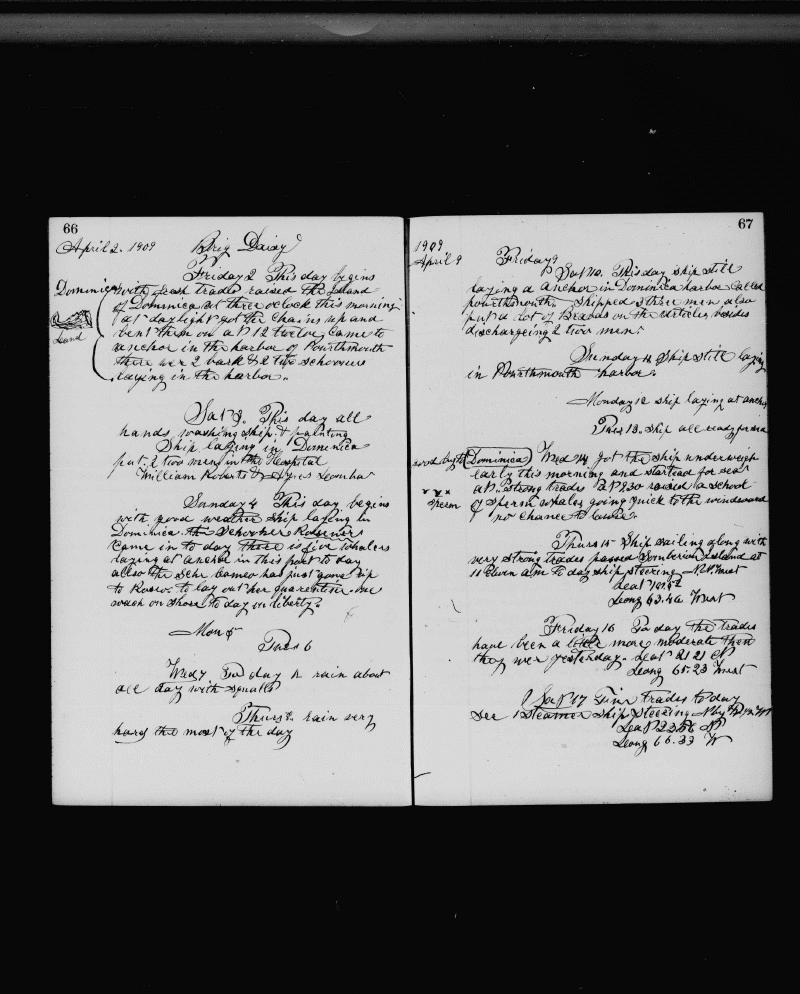 66
April 2. 1909 Brig Daisy
Friday 2 This day begins
Dominica with fresh trades raised the Island
of Dominica at three oclock this morning
Land at daylight got the chains up and
bent them on at 12 twelve came to
anchor in the harbor of Pourthmouth
there wer 2 bark & 2 two schooners
laying in the harbor.
Sat 3. This day all
hands washing ship & painting
Ship laying in Dominica
put 2 two men in the Hospital
William Roberts &
Sunday 4 This day begins
with good weather ship laying in
Dominica the Schooner
came in to day there is five whalers
laying at anchor in this port to day
allso the Schr Cameo has just gone up
to to lay out her quarentine one
wach on shore to day on liberty.
Mon 5
Tues 6
Wed 7 To day rain about
all day with squalls
Thurs 8 rain very
hard the most of the day
67
1909
April 9 Friday 9
Sat 10. This day ship still
laying a anchor in Dominica harbor called
pourthmouth. Shipped 3 three men also
put a lot of on the articles besides
dischargeing 2 two men.
Sunday 11 Ship still laying
in Pourthmouth harbor.
Monday 12 ship laying at anchor
Tues 13. ship all ready for sea
Dominica Wed 14 got the ship underweigh
early this morning and started for sea
at strong trades at 8.30 raised a school
Sperm of sperm whales going quick to the windward
no chance to lower.
Thurs 15 Ship sailing along with
very strong trades passed Sombrero Island at
11 Eleven a.m to day ship steering N.N.West
Leat
Long 63.46 West
Friday 16 To day the trades
have been a little more moderate then
they wer yesterday. Leat 21 21 N
Long 65.23 West
Sat 17 Fine trades to day
see 1 Steamer Ship Steering
Leat N
Long 66.33 W